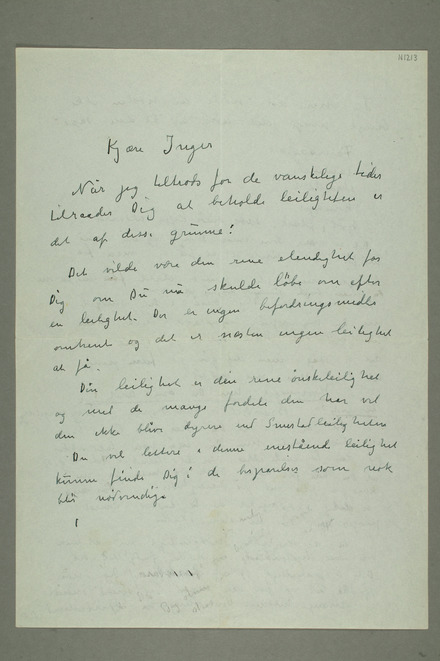 N1213
Kjære Inger
Når jeg tiltrods for de vanskelige tider
tilraader Dig at beholde leiligheten er
det af disse grunne:
Det vilde være den rene elendighet for
Dig om Du nu skulde löbe om efter
en leilighet. Der er ingen befordringsmidler
omtrent og det er næsten ingen leilighet
at få.
Din leilighet er den rene önskeleilighet
og med de mange fordele den har vil
den ikke blive dyrere end Smestadleiligheten
Du vil lettere i denne enestående leilighet
kunne finde Dig i de besparelser som nok
blir nödvendige